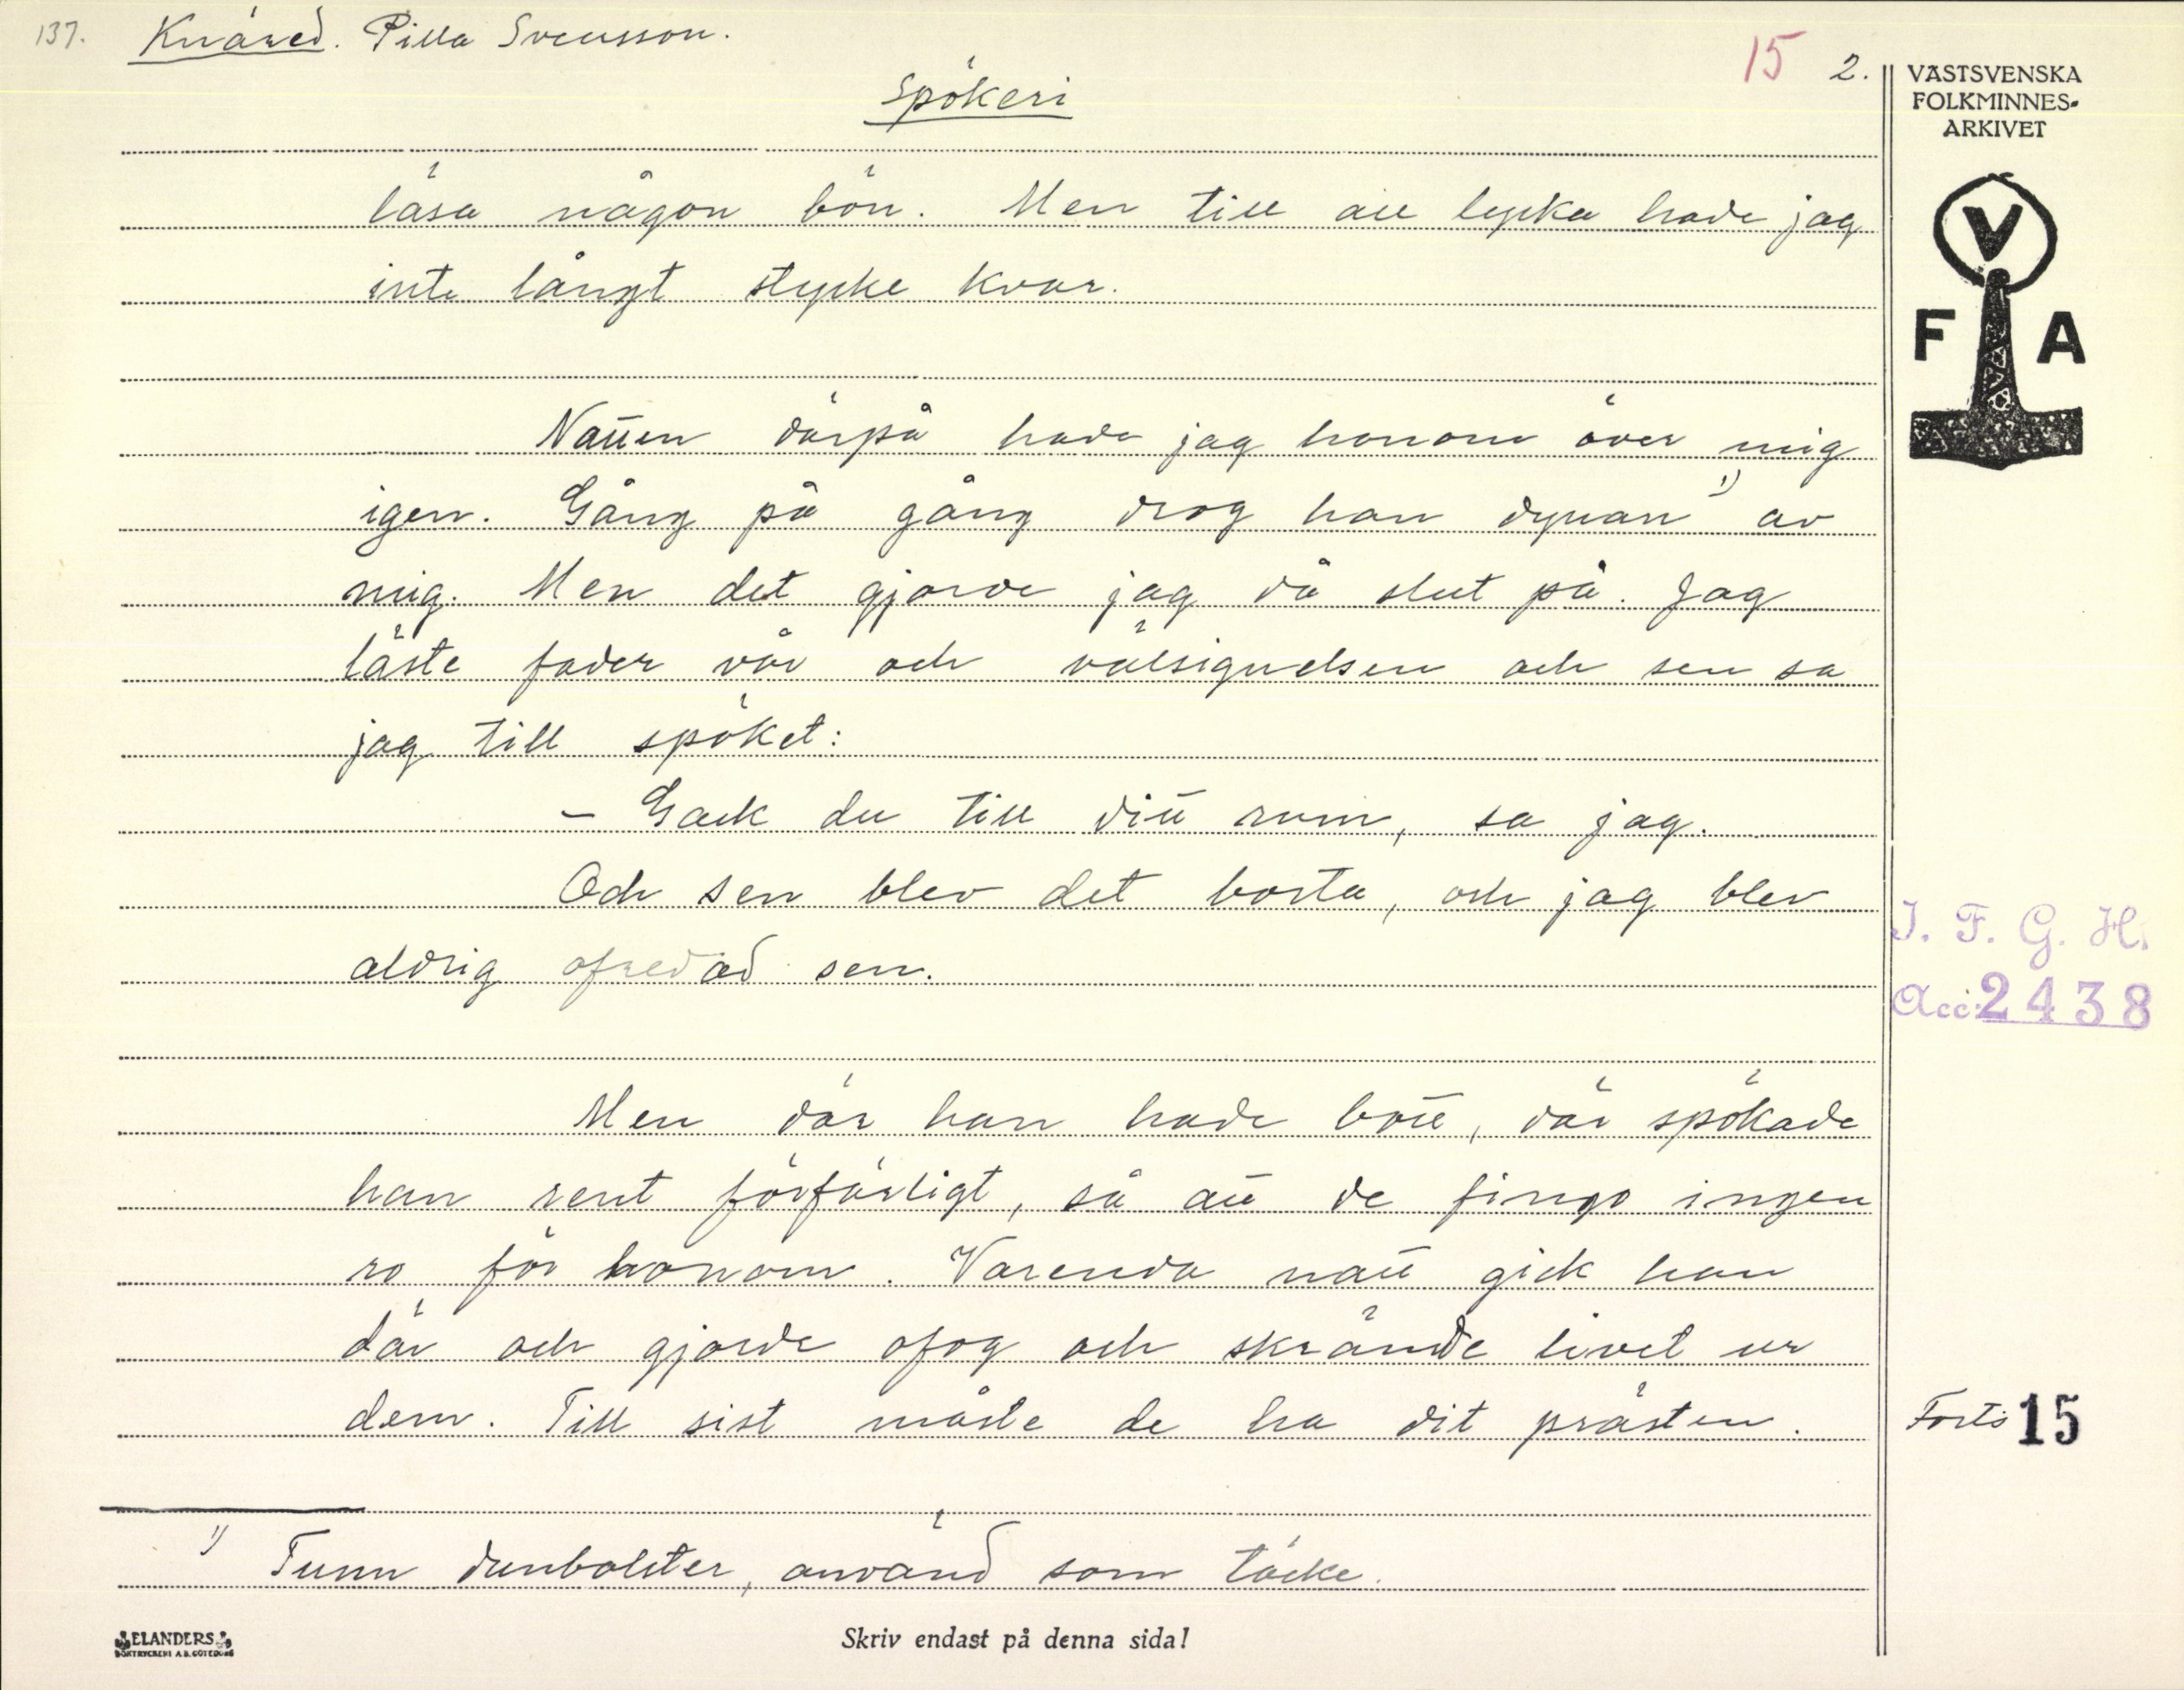 137. Knäred. Pilla Svensson.
15 2.
Spökeri
VÄSTSVENSKA
FOLKMINNES-
ARKIVET
V
F A
läsa någon bön. Men till all lycka hade jag
inte långt stycke kvar.
Natten därpå hade jag honom över mig
igen. Gång på gång drog han dynan 1) av
mig. Men det gjorde jag då slut på. Jag
läste fader vår och välsignelsen och sen sa
jag till spöket:
- Gack du till ditt rum, sa jag.
Och sen blev det borta, och jag blev
aldrig ofredad sen.
I. F. G. H.
Acc: 2438
Men där han hade bott, där spökade
han rent förfärligt, så att de fingo ingen
ro för honom. Varenda natt gick han
där och gjorde ofog och skrämde livet ur
dem. Till sist måste de ha dit prästen.
Forts 15
1) Tunn dunbolster, använd som täcke.
ELANDERS
BOKTRYCKERI A.B. GÖTEBORG
Skriv endast på denna sida!